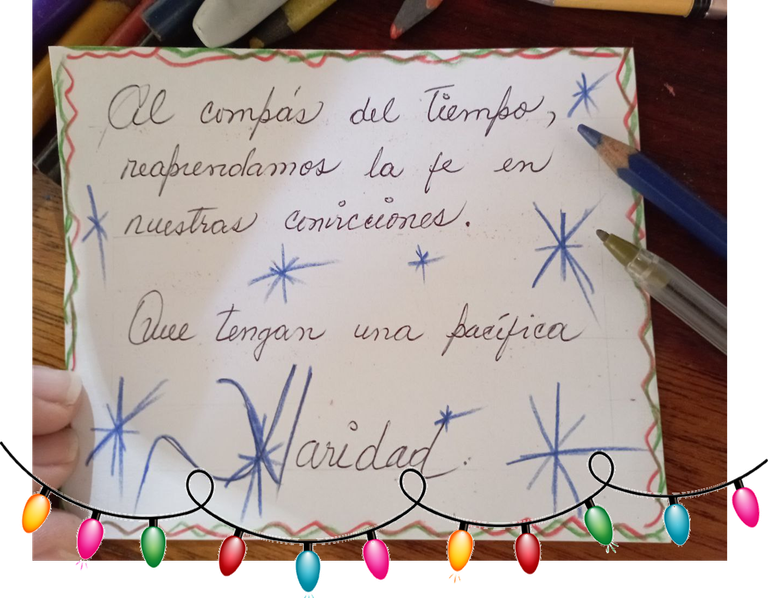 Al compás del Tiempo,
reaprendamos la fe en
nuestras convicciones.
Que tengan una pacífica
Navidad.